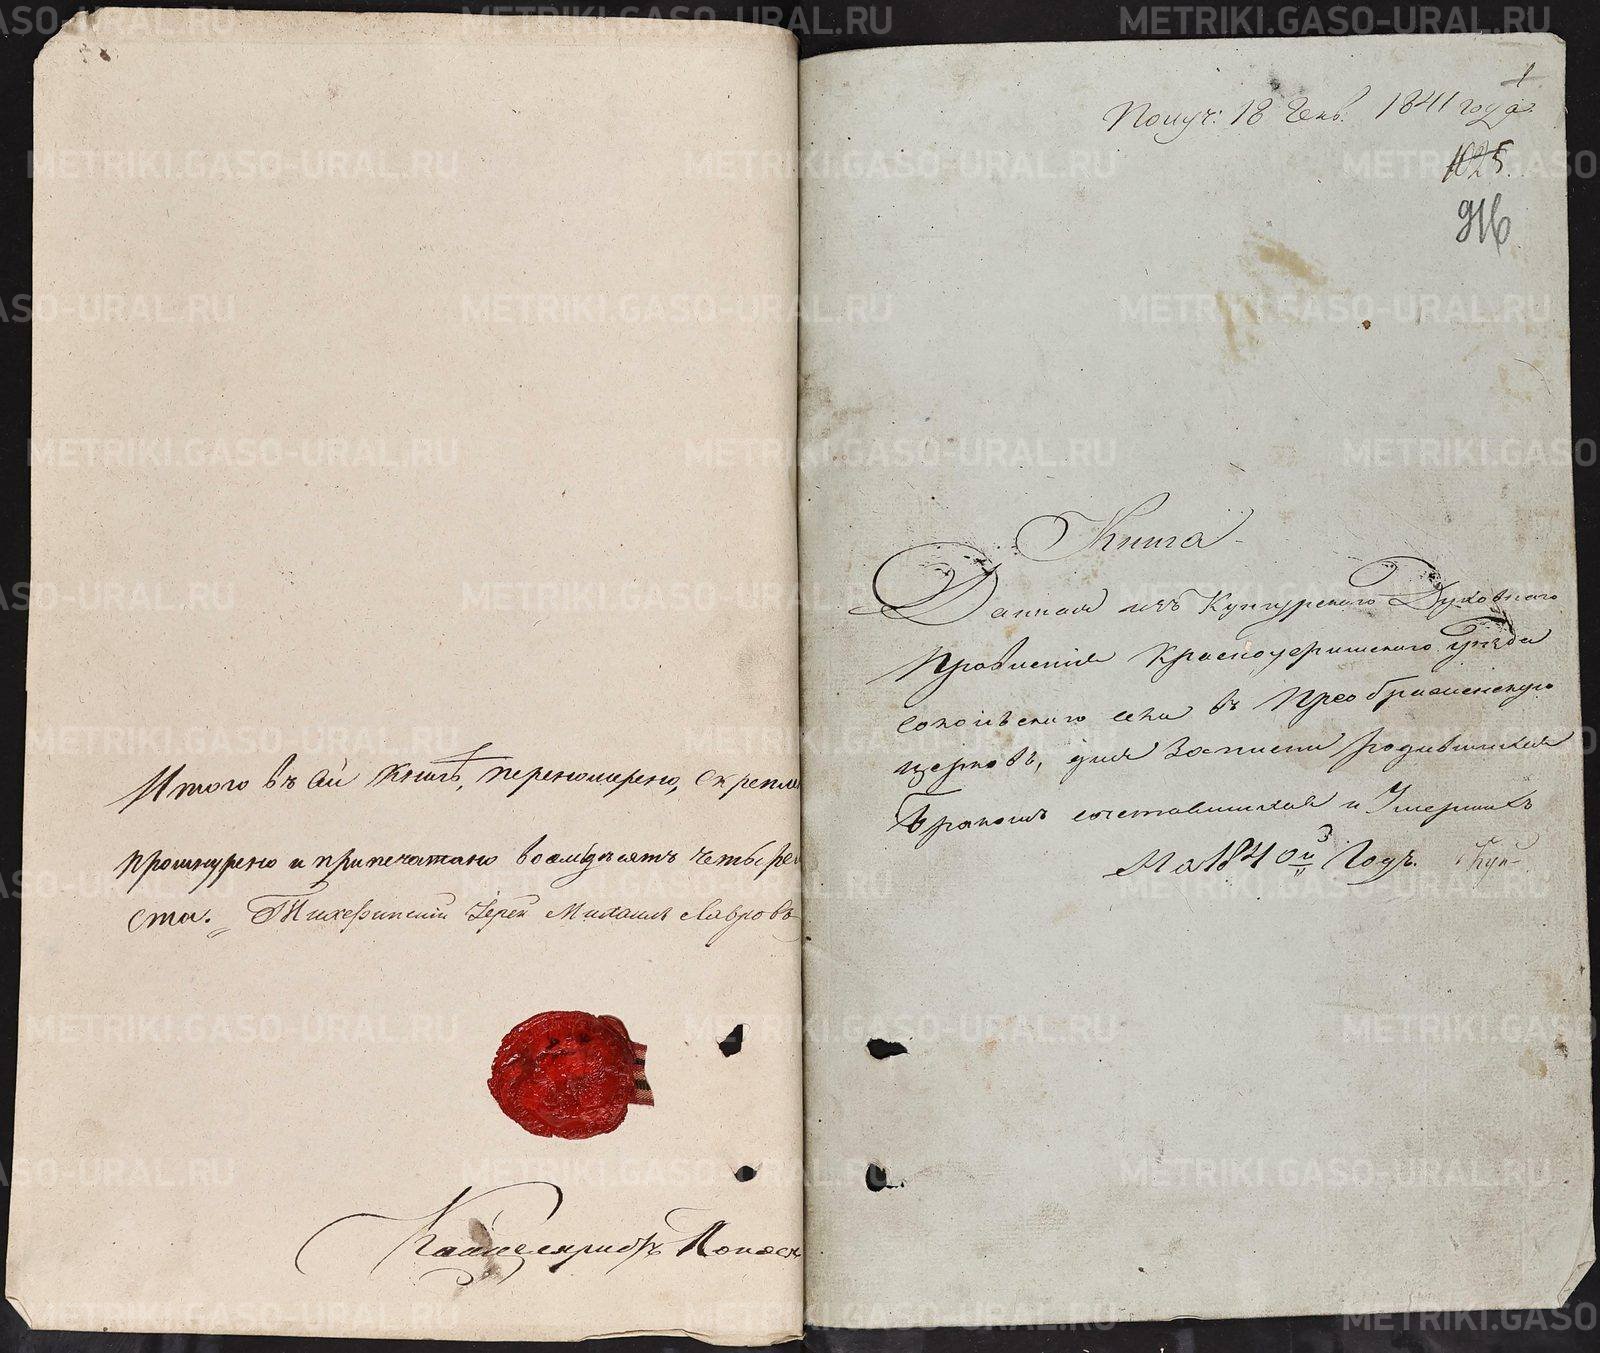 Итого въ сей книгѣ, перенумерено, скрепле
прошнурено и припечатано восмьдѣсятъ четыре
ста. Тихвинский Iерей Михаилъ Лавровъ
Канцеляристъ
1
Получ: 18 Генв. 1841 года.
1025
916
Книга
Данная изъ Кунгурского Духовнаго
Правления Красноуфимскаго уѣзда
сокольскаго села въ Преображенскую
церковь, для Записки родившихся
Бракомъ сочетавшихся и Умершихъ
На 1840й Годъ.
METRIKI.GASO-URAL.RU